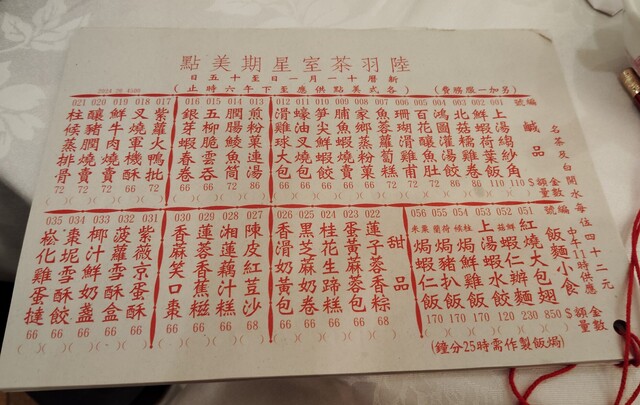 陸羽茶室星期美點
新曆十一月一日至十五日
(各式美點供應至下午六時止)
(另加一服務費)
名茶及白開水每位四十二元
編號
鹹品
$金額
數量
001 上湯 角 110
002 鮮蝦荷葉飯 110
003 北菇糯雞卷 80
004 鴻圖灌湯餃 86
005 百花釀魚肚 86
006 珊瑚滑雞甫 72
007 魚蓉蘿蔔糕 66
008 家鄉蒸粉果 66
009 脯魚蝦燒賣 66
010 筍尖鮮蝦餃 66
011 蠔油叉燒包 66
012 滑雞球大包 66
013 煎粉果連湯 86
014 潤腸鯪魚筒 72
015 五柳脆雲吞 66
016 銀芽蝦春卷 66
017 紫蘿火鴨批 72
018 叉燒軍機酥 72
019 鮮牛肉燒賣 72
020 釀豬潤燒賣 72
021 柱候蒸排骨 72
編號
飯麵小食
中午11時供應
$金額
數量
051 紅燒大包翅 850
052 鮮菇蝦仁辦麵 230
053 上湯蝦水餃 120
054 柱候焗鮮魷飯 170
055 焗豬扒飯 170
056 粟米焗蝦仁飯 170
甜品
022 蓮子蓉香粽 68
023 蛋黃蔴蓉包 66
024 桂花生蹄糕 66
025 黑芝麻奶卷 66
026 香滑奶黃包 66
027 陳皮紅荳沙 68
028 湘蓮藕汁糕 66
029 蓮蓉香蕉糍 66
030 香蔴笑口棗 66
031 紫薇京蛋糕 66
032 菠蘿雪酥盒 66
033 椰汁鮮奶盞 66
034 棗坭雪酥餃 66
035 崧化雞蛋撻 66
(焗飯製作需時25分鐘)